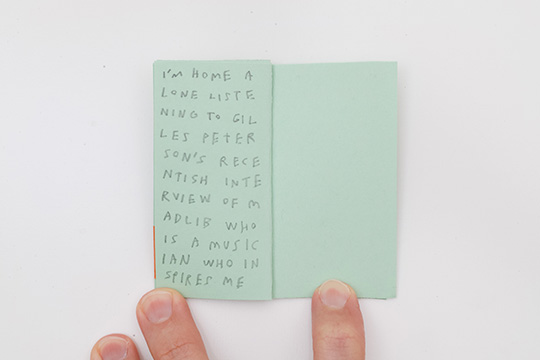 I'M HOME A
LONE LISTE
NING TO GIL
LES PETER
SON'S RECE
NTISH INTE
RVIEW OF M
ADLIB WHO
IS A MUSIC
IAN WHO IN
SPIRES ME